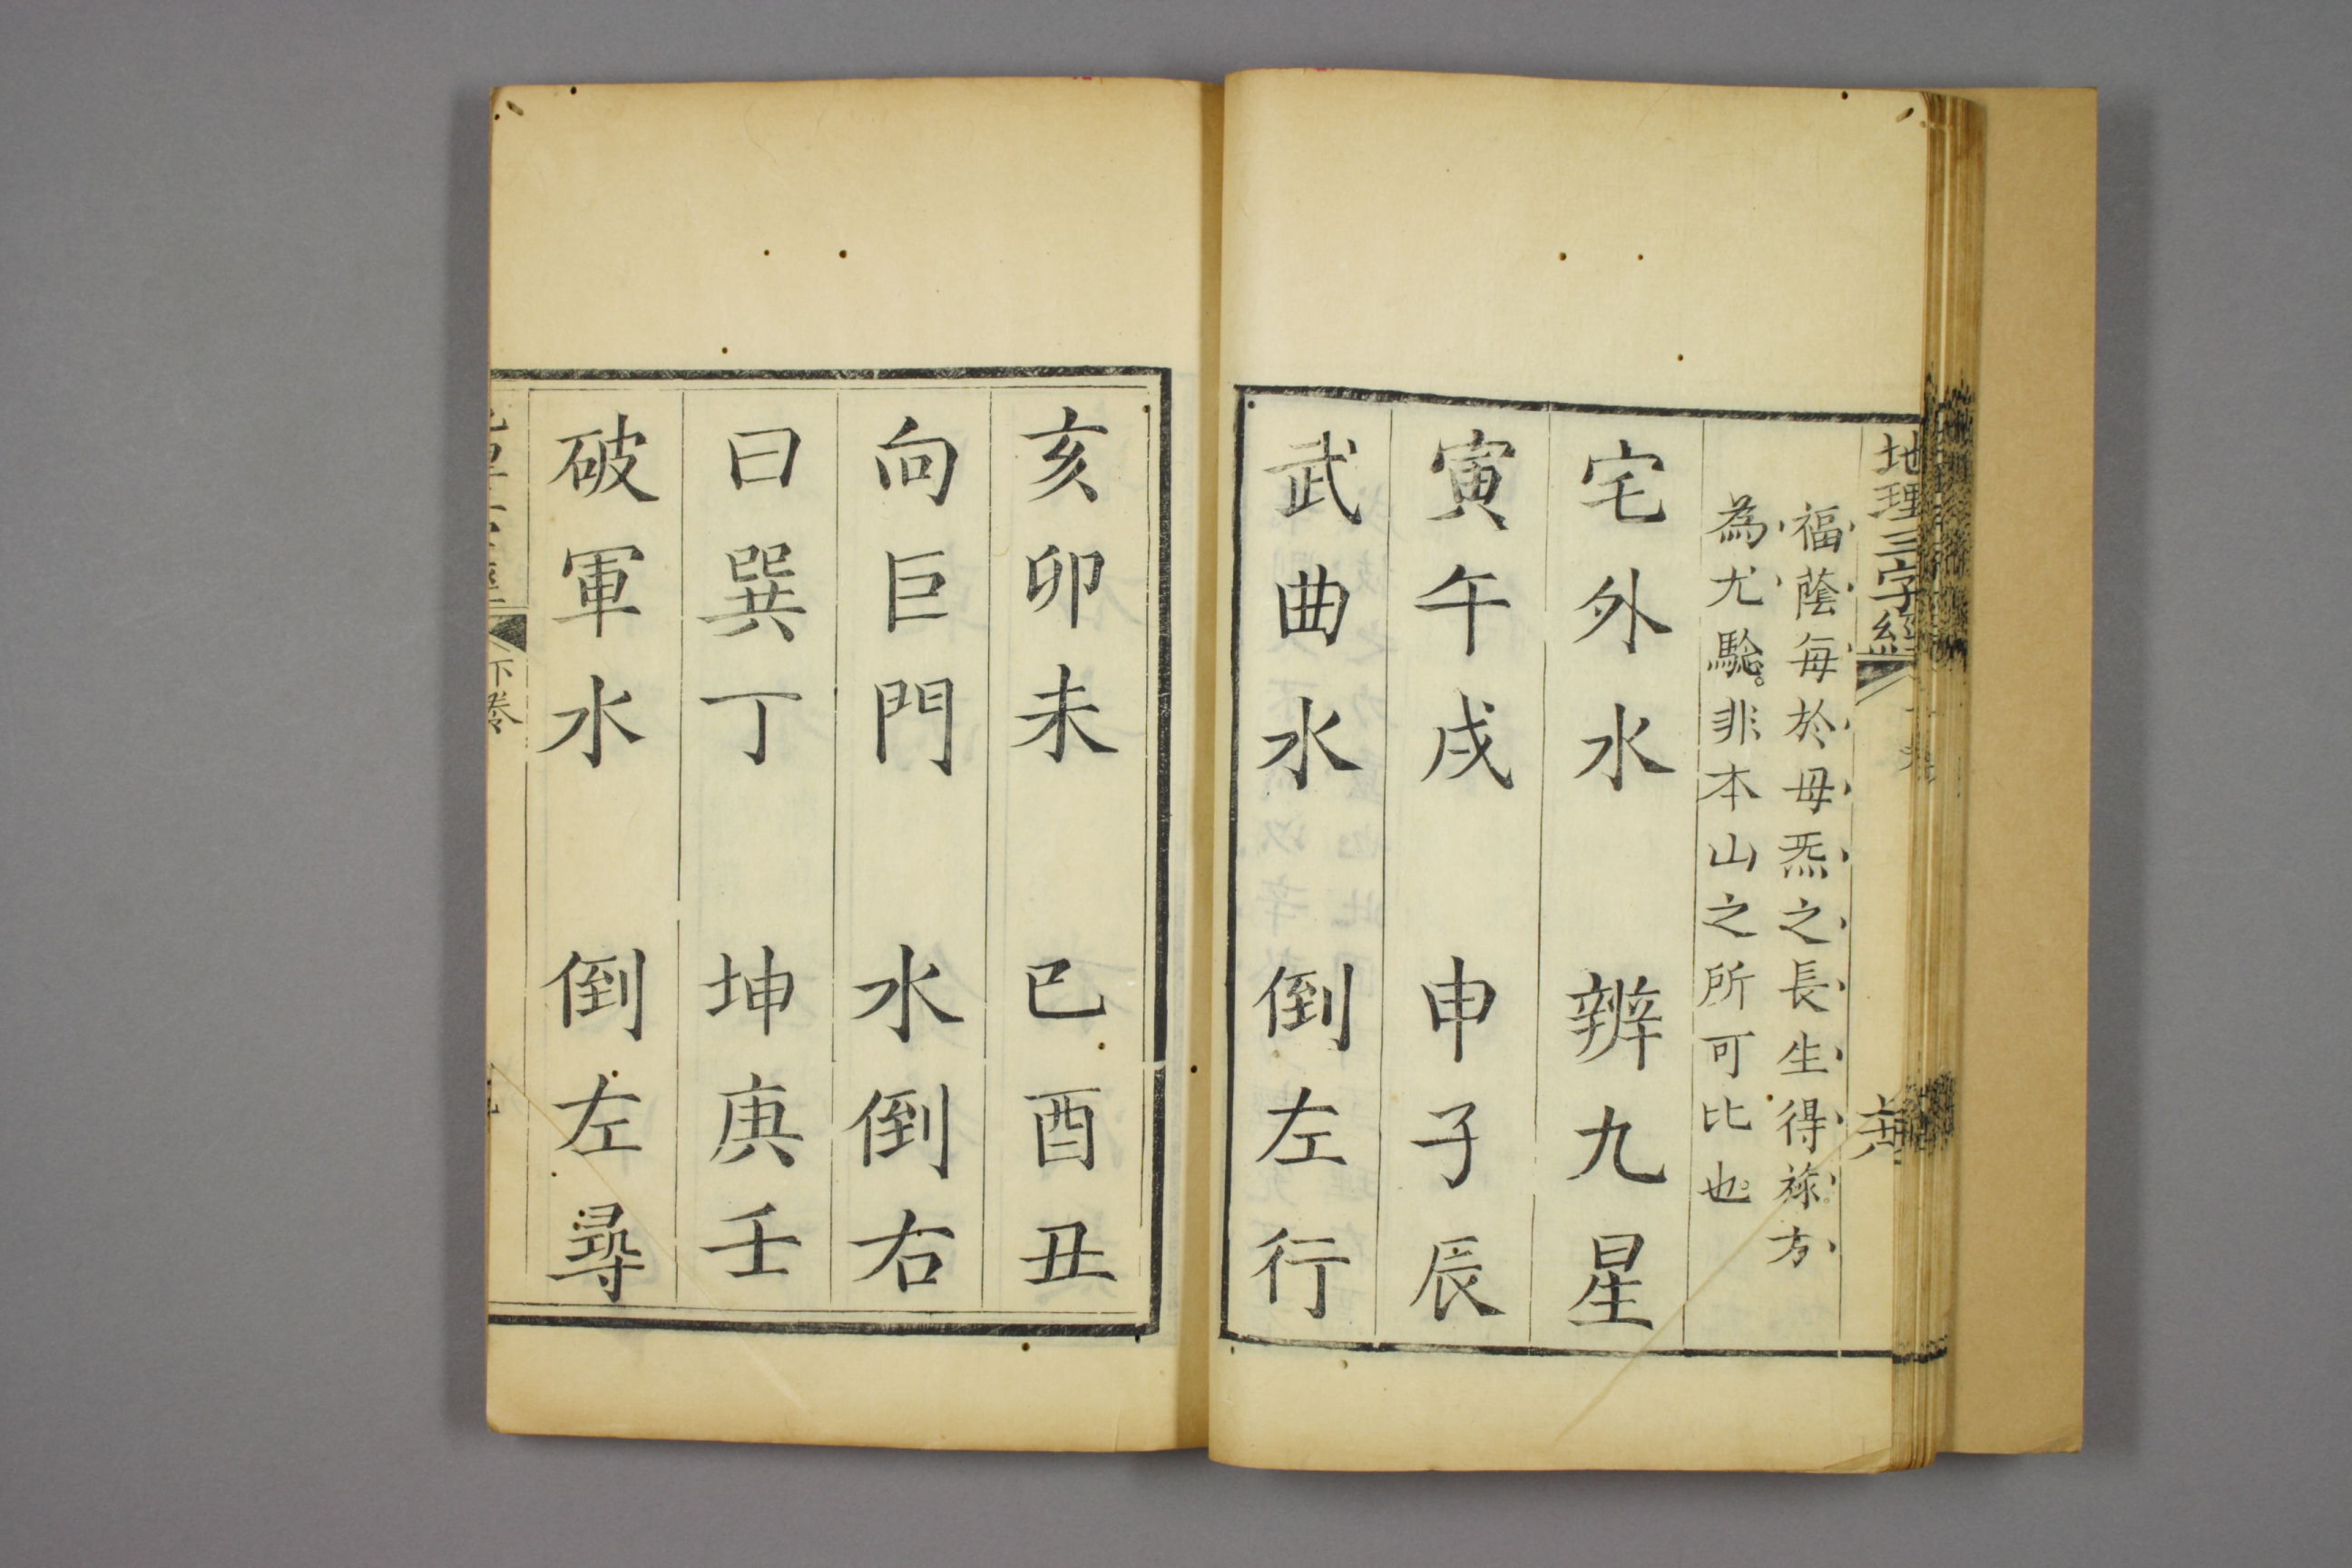 地理三字經
福蔭每於母炁之長生得祿方
為尤騐。非本山之所可比也。
宅外水　辨九星
寅午戌　申子辰
武曲水　倒左行
亥卯未　巳酉丑
向巨門　水倒右
曰巽丁　坤庚壬
破軍水　倒左尋
下卷